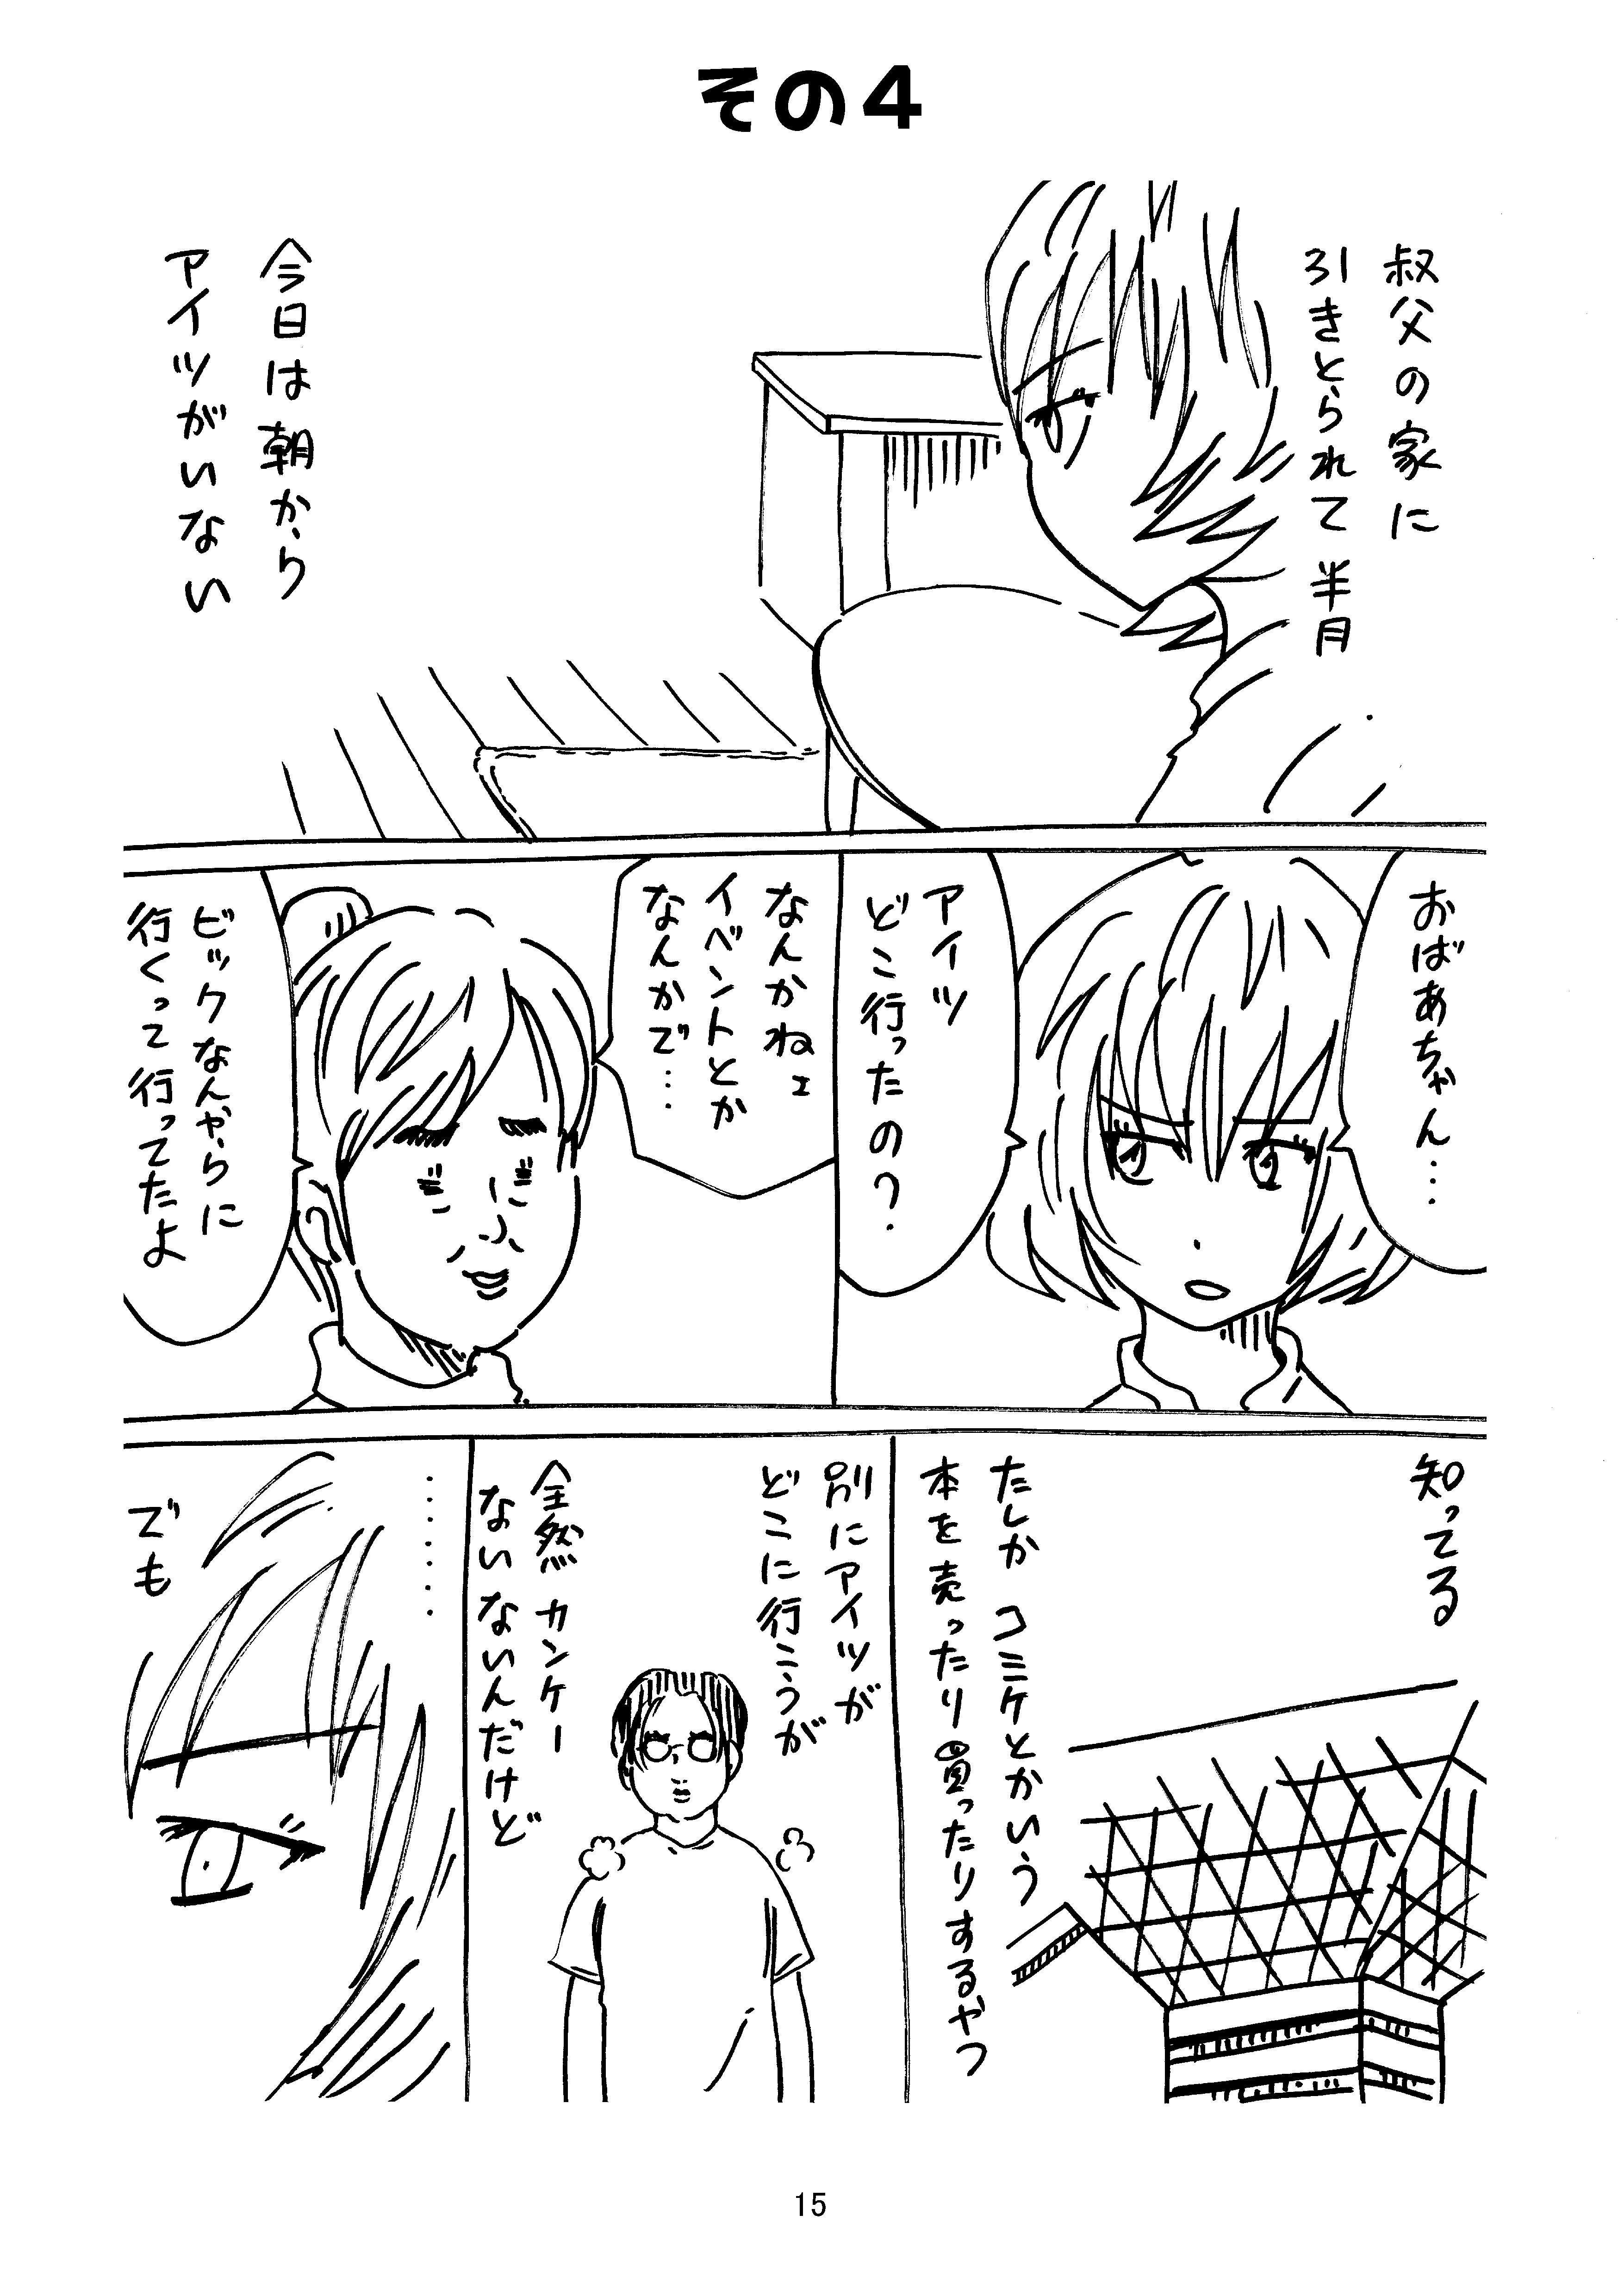 その4
叔父の家に
引きとられて半月
今日は朝から
アイツがいない
おばあちゃん…
アイツ
どこ行ったの？
なんかねェ
イベントとか
なんかで…
ビックなんやらに
行くって行ってたよ
知ってる
たしかコミケとかいう
本を売ったり買ったりするやつ
別にアイツが
どこに行こうが
全然カンケー
ないないんだけど
……
でも
15